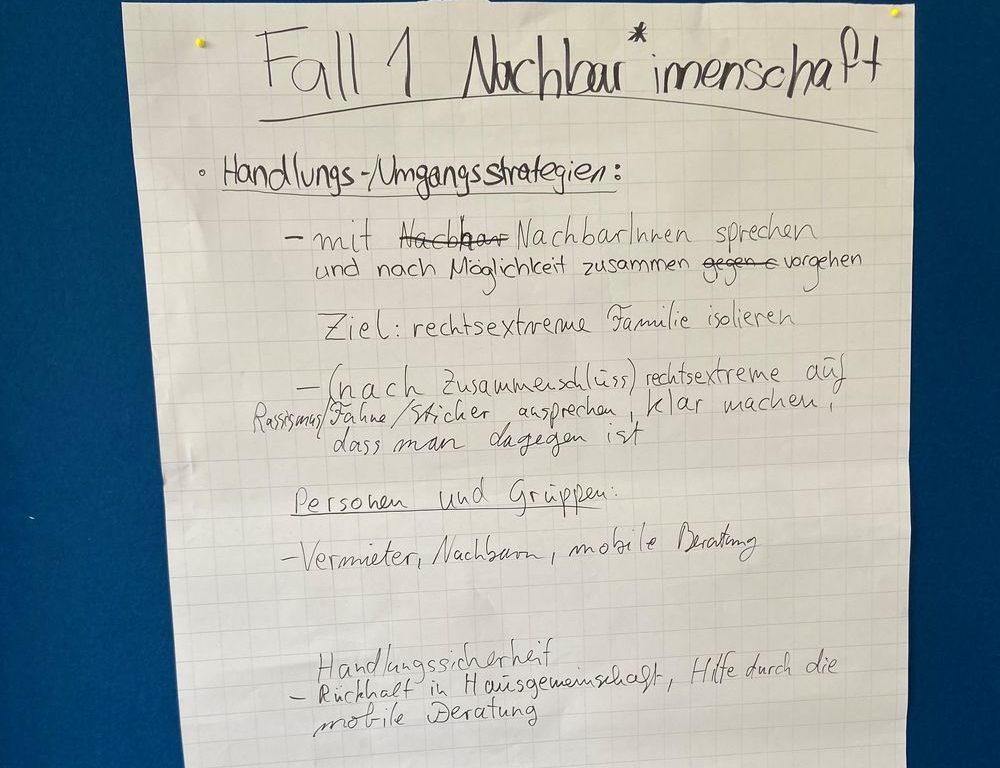 Fall 1 Nachbar*innenschaft
• Handlungs-/Umgangsstrategien:
- mit Nachbar NachbarInnen sprechen
und nach Möglichkeit zusammen gegen e vorgehen
Ziel: rechtsextreme Familie isolieren
- (nach Zusammenschluss) rechtsextreme auf
Rassismus/Fahne/Sticher ansprechen, klar machen,
dass man dagegen ist
Personen und Gruppen:
- Vermieter, Nachbarn, mobile Beratung
Handlungssicherheit
- Rückhalt in Hausgemeinschaft, Hilfe durch die
mobile Beratung